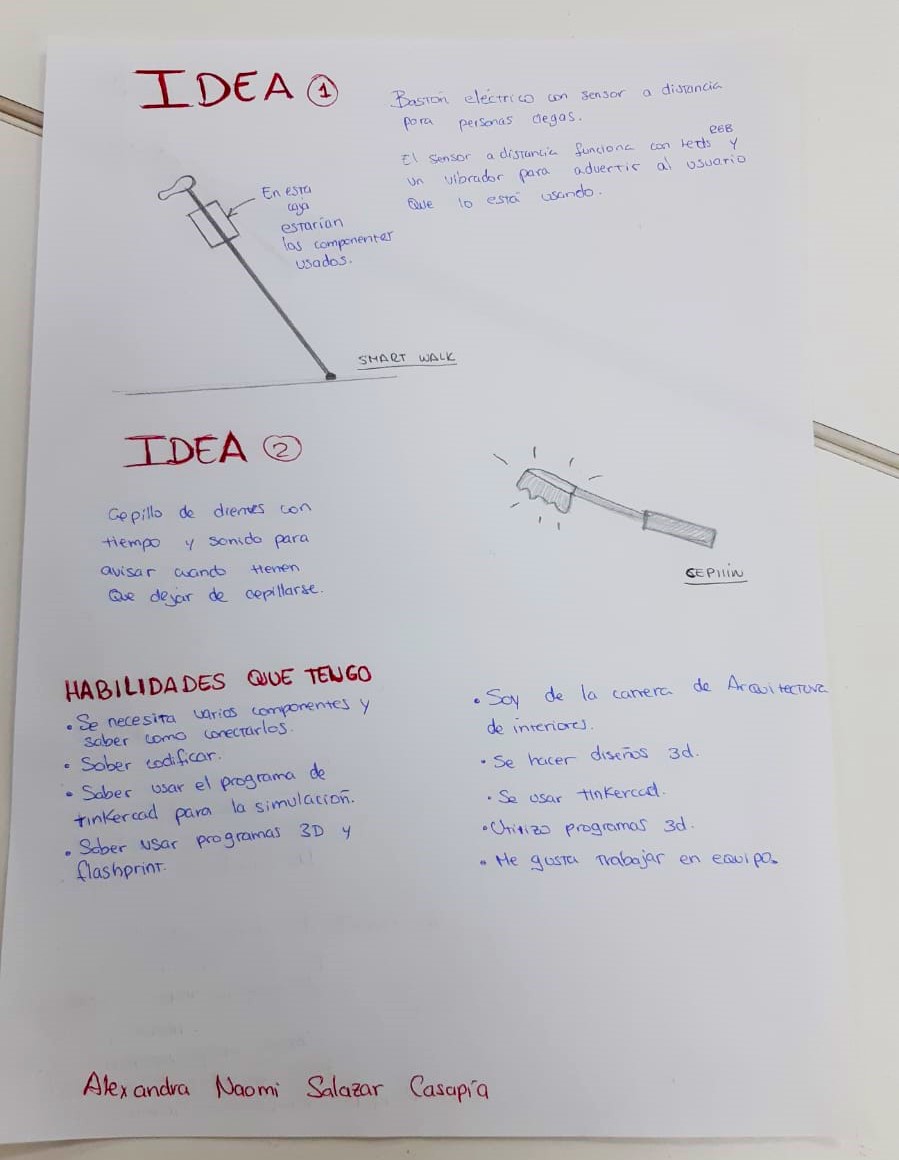 IDEA 1
Bastón eléctrico con sensor a distancia
para personas ciegas.
El sensor a distancia funciona con leds RGB y
un vibrador para advertir al usuario
Que lo está usando.
En esta
caja
estarían
los componentes
usados.
SMART WALK
IDEA 2
Cepillo de dientes con
tiempo y sonido para
avisar cuando tienen
Que dejar de cepillarse.
CEPIllíN
HABILIDADES QUE TENGO
• Se necesita varios componentes y
saber como conectarlos.
• Saber codificar.
• Saber usar el programa de
tinkercad para la simulación.
• Saber usar programas 3D y
flashprint.
• Soy de la carrera de Arquitectura
de interiores.
• Se hacer diseños 3d.
• Se usar tinkercad.
• Utilizo programas 3d.
• Me gusta trabajar en equipo.
Alexandra Naomi Salazar Casapía